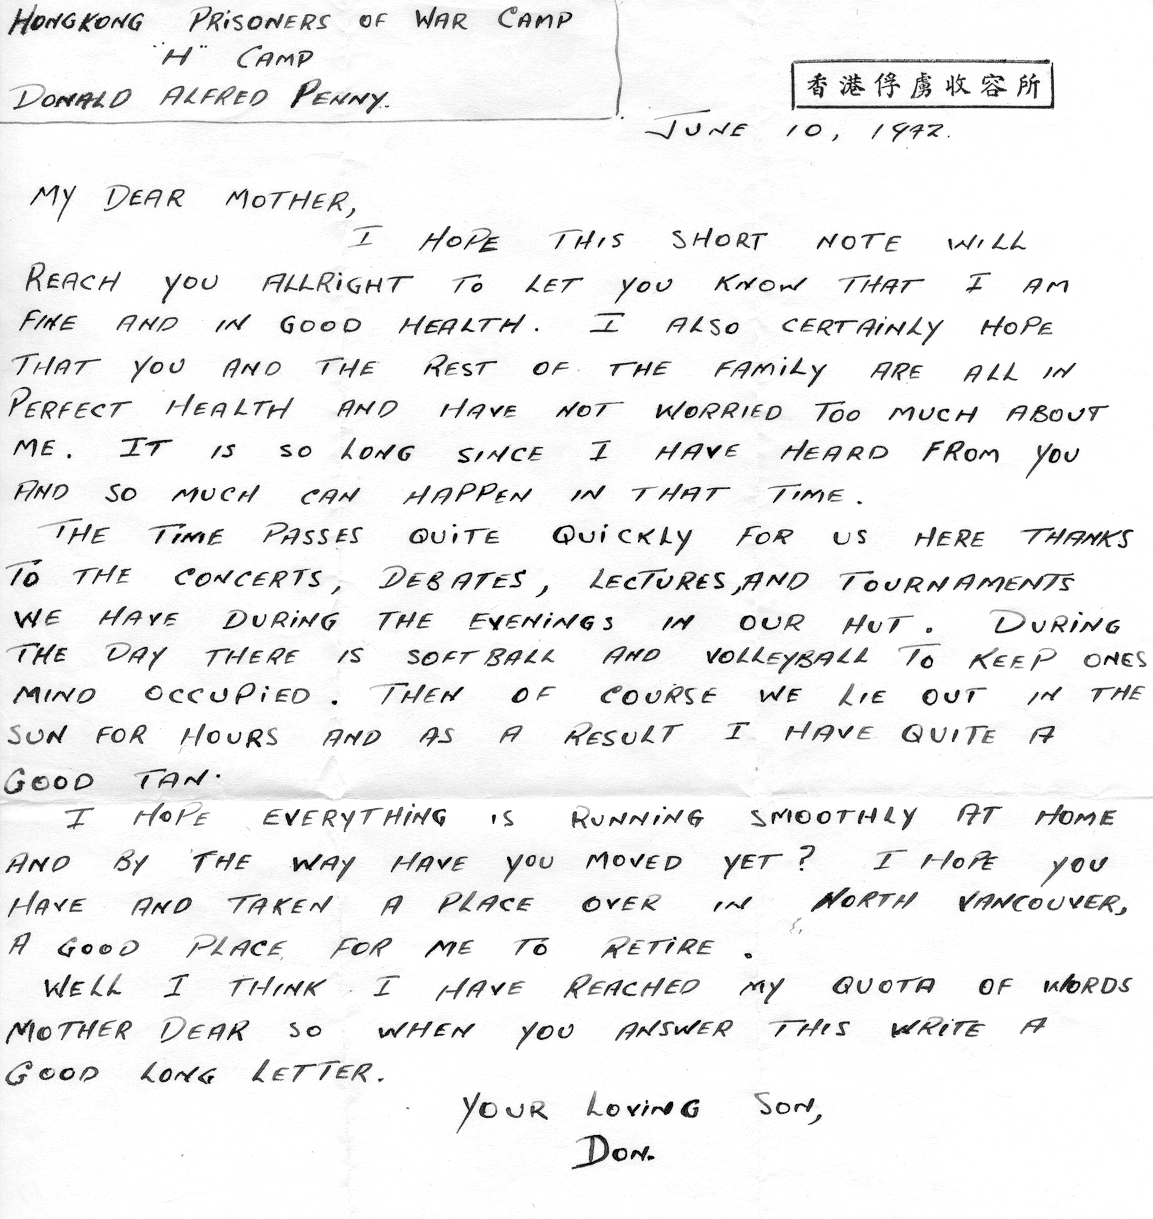 HONGKONG PRISONERS OF WAR CAMP
"H" CAMP
DONALD ALFRED PENNY.
香港俘虜收容所
JUNE 10, 1942.
MY DEAR MOTHER,
I HOPE THIS SHORT NOTE WILL
REACH YOU ALLRIGHT TO LET YOU KNOW THAT I AM
FINE AND IN GOOD HEALTH. I ALSO CERTAINLY HOPE
THAT YOU AND THE REST OF THE FAMILY ARE ALL IN
PERFECT HEALTH AND HAVE NOT WORRIED TOO MUCH ABOUT
ME. IT IS SO LONG SINCE I HAVE HEARD FROM YOU
AND SO MUCH CAN HAPPEN IN THAT TIME.
THE TIME PASSES QUITE QUICKLY FOR US HERE THANKS
TO THE CONCERTS, DEBATES, LECTURES, AND TOURNAMENTS
WE HAVE DURING THE EVENINGS IN OUR HUT. DURING
THE DAY THERE IS SOFTBALL AND VOLLEYBALL TO KEEP ONES
MIND OCCUPIED. THEN OF COURSE WE LIE OUT IN THE
SUN FOR HOURS AND AS A RESULT I HAVE QUITE A
GOOD TAN.
I HOPE EVERYTHING IS RUNNING SMOOTHLY AT HOME
AND BY THE WAY HAVE YOU MOVED YET? I HOPE YOU
HAVE AND TAKEN A PLACE OVER IN NORTH VANCOUVER,
A GOOD PLACE FOR ME TO RETIRE.
WELL I THINK I HAVE REACHED MY QUOTA OF WORDS
MOTHER DEAR SO WHEN YOU ANSWER THIS WRITE A
GOOD LONG LETTER.
YOUR LOVING SON,
DON.